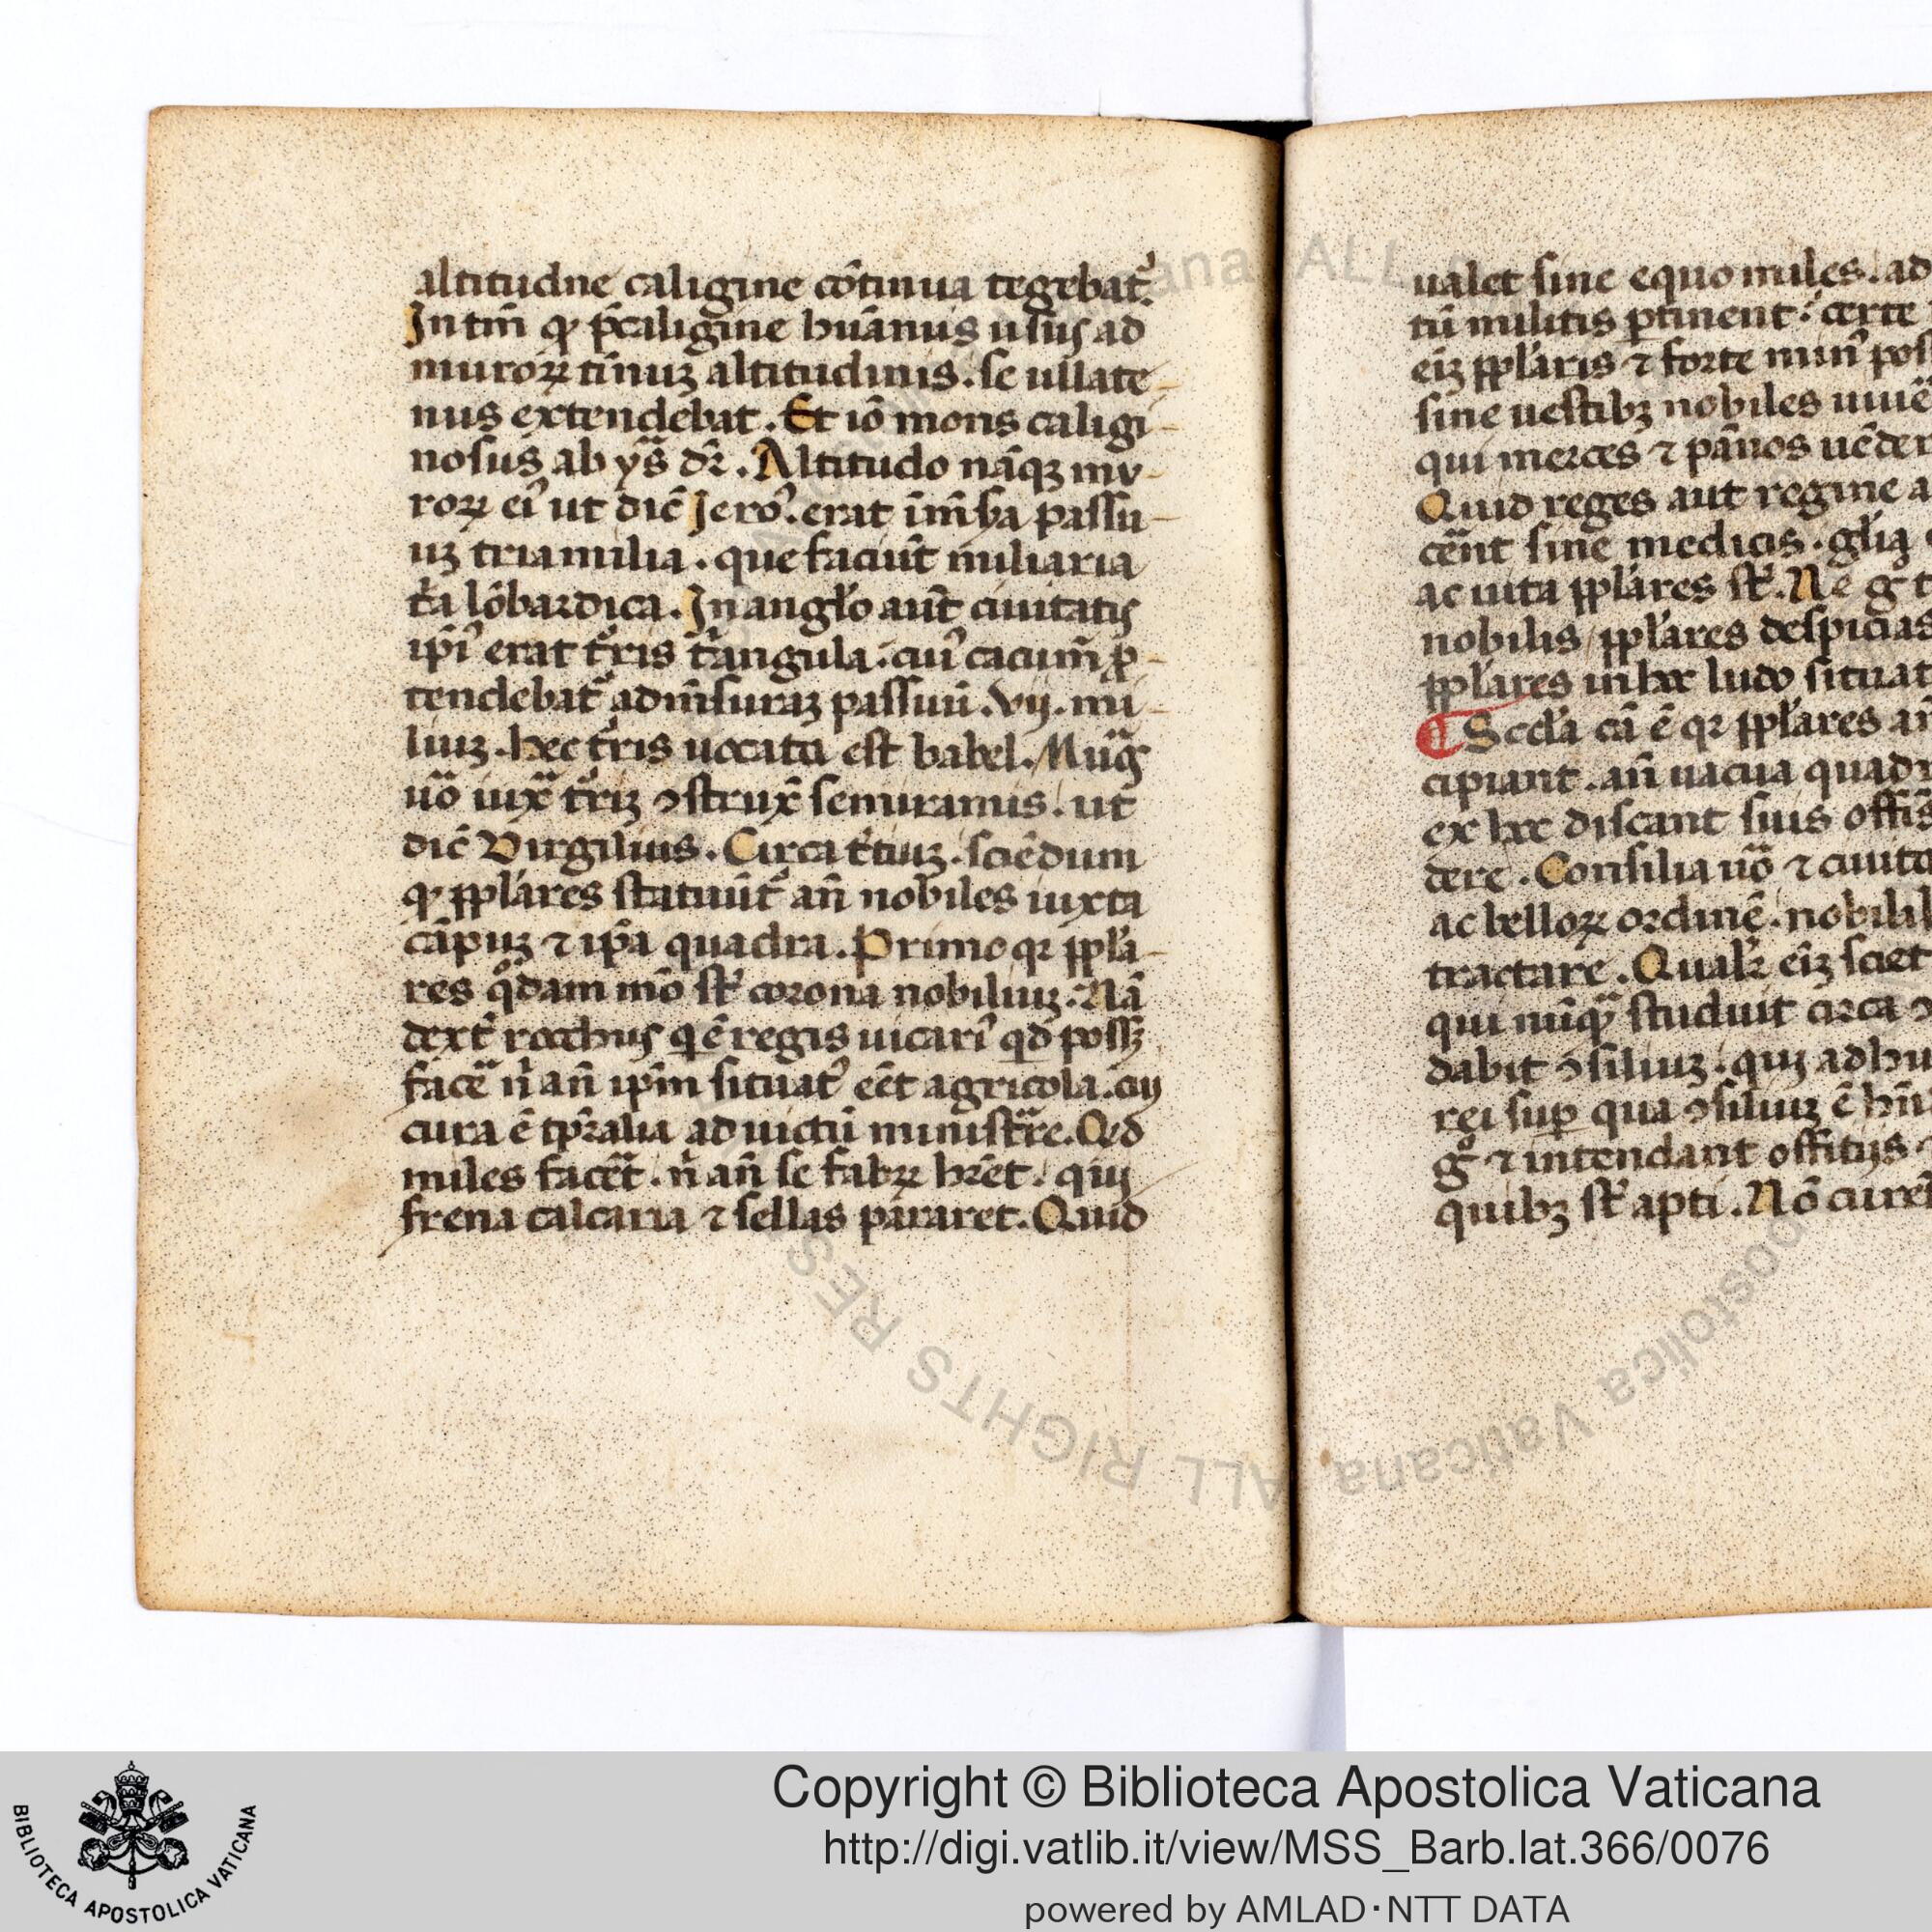 altitudne caligine cōtinua tegebat᷑.
In tm̄ ꝙ p̄caligine huānus usus ad
muroꝝ tīnuꝫ altitudinis. se ullate-
nus extendebat. Et iō mons caligi-
nosus ab ys̄ dr̄. Altitudo nāqꝫ mv-
roꝝ eiꝰ ut dic̄ Jerōꝰ. erat īm̄sa passu-
uꝫ tria milia. que faciūt miliaria
t̄a lōbardica. In angl̄o aut̄ ciuitatis
ip̄iꝰ erat t᷑ris t̄angula. cuiꝰ cacum̄ ꝓ-
tendebat᷑ ad m̄suraꝫ passuū. vij. mi-
liuꝫ. hec t᷑ris uocata est babel. Muꝝ
uō iux̄ t᷑riꝫ ꝯstrux̄ semiramis. ut
dic̄ Virgilius. Circa t̄tiuꝫ. sciēdum
ꝙ ppl̄ares statuūt᷑ an̄ nobiles iuxta
cāpuꝫ ⁊ ip̄a quadra. Primo qꝛ ppl̄a-
res qͦdam mō st̄ corona nobiliuꝫ. Nā
dext̄ rocchus q ē regis uicariꝰ qd possꝫ
face᷑ n̄ an̄ ip̄m situatꝰ eēt agricola. cuj
cura ē tp̄ralia ad uictū minist᷑re. Qd
miles facēt. n̄ an̄ se fabꝝ hr̄et. qui
frena calcaria ⁊ sellas pararet. Quid
ualet sine equo miles. ad
tū militis ꝑtinent. certe
eiꝫ ppl̄aris ⁊ forte minꝰ pos
sine uestibꝫ nobiles uiuē
qui merces ⁊ pānos uēder
Quid reges aut regine a
cēnt sine medicis. gl̄ia
ac uita ppl̄ares st̄. Ne gͦ t
nobilis ppl̄ares despicias
ppl̄ares in hoc ludo situat
Scd̄a cā ē qꝛ ppl̄ares an
cipiant. an̄ uacua quadr
ex hoc discant suis offīs
dere. Consilia uō ⁊ ciuita
ac belloꝝ ordinē. nobilib
tractare. Qualr̄ eiꝫ sciet
qui nūqͣ studuit circa ꝯ
dabit ꝯsiliuꝫ. qui ad hu
rei suꝑ qua ꝯsiliuꝫ ē hn̄
gͦ ⁊ intendant offitijs.
quibꝫ st̄ apti. Nō curē
Copyright © Biblioteca Apostolica Vaticana
http://digi.vatlib.it/view/MSS_Barb.lat.366/0076
powered by AMLAD·NTT DATA
BIBLIOTECA APOSTOLICA VATICANA